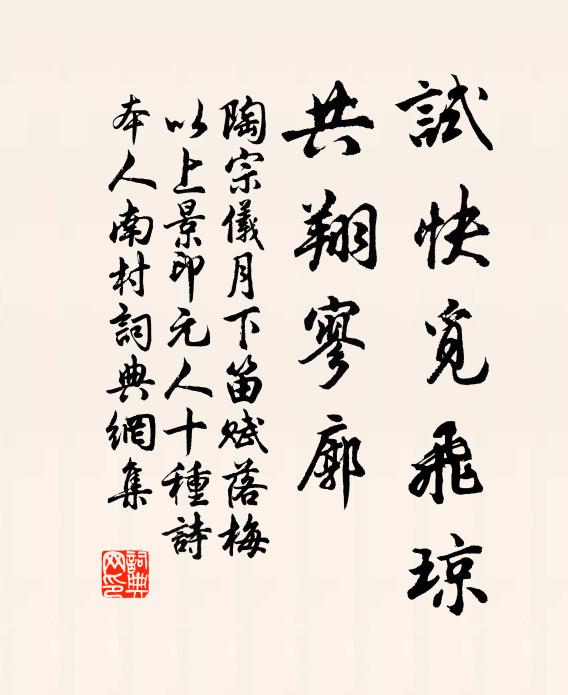 試快覓飛琼
共翔寥廓
陶宗儀月下笛賦落梅
以上景印元人十種詩
本人南村詞典網集
詞典網印